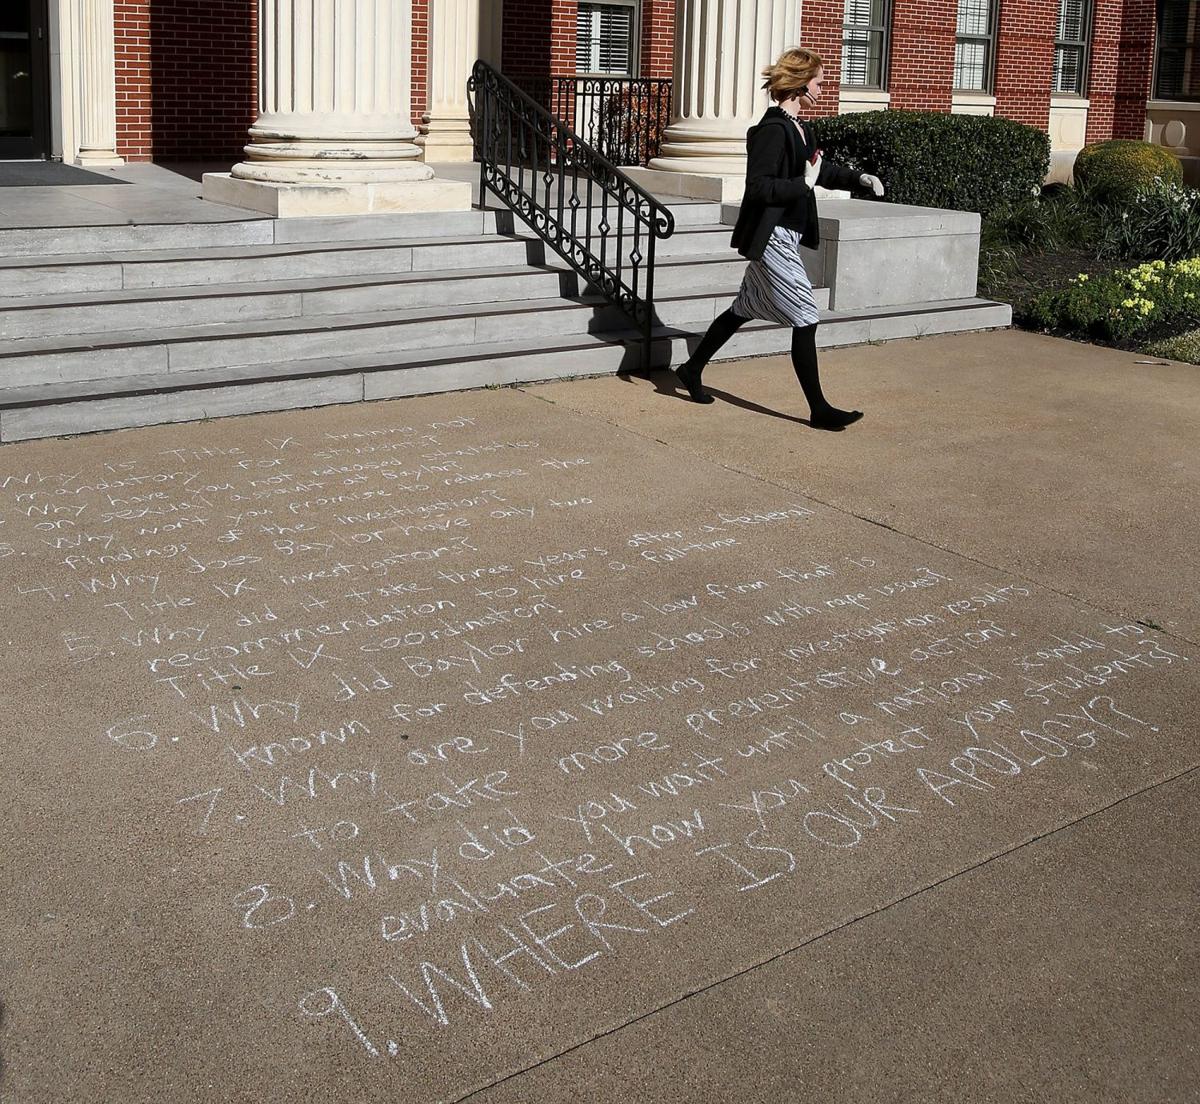 Why is Title IX training not
mandatory for students?
Why have you not released statistics
on sexual assault at Baylor?
3. Why won't you promise to release the
findings of the investigation?
4. Why does Baylor have only two
Title IX investigators?
5. Why did it take three years after a federal
recommendation to hire a full-time
Title IX coordinator?
6. Why did Baylor hire a law firm that is
known for defending schools with rape issues?
7. Why are you waiting for investigation results
to take more preventative action?
8. Why did you wait until a national scandal to
evaluate how you protect your students?
9. WHERE IS OUR APOLOGY?